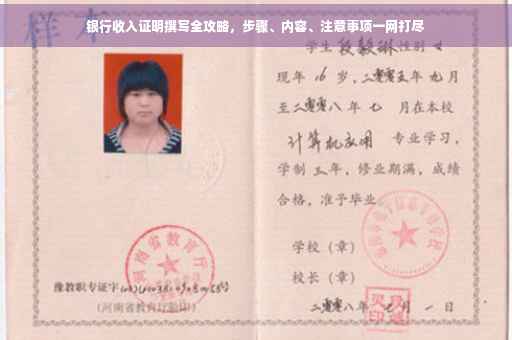 银行收入证明撰写全攻略，步骤、内容、注意事项一网打尽
样本
学生段毅琳性别女
现年16岁，二零零五年九月
至二零零八年七月在本校
计算机应用 专业学习，
学制三年，修业期满，成绩
合格，准予毕业。
学校（章）
校长（章）
二零零八年 月一日
河南省教育厅
豫教职专证字
（河南省教育厅验印）